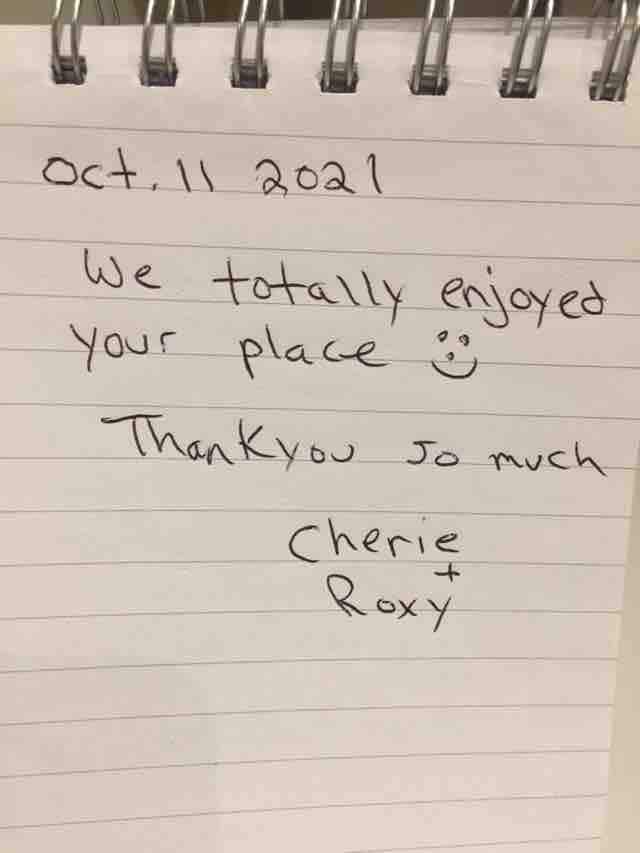 Oct. 11 2021
We totally enjoyed
your place
Thankyou so much
Cherie
+
Roxy